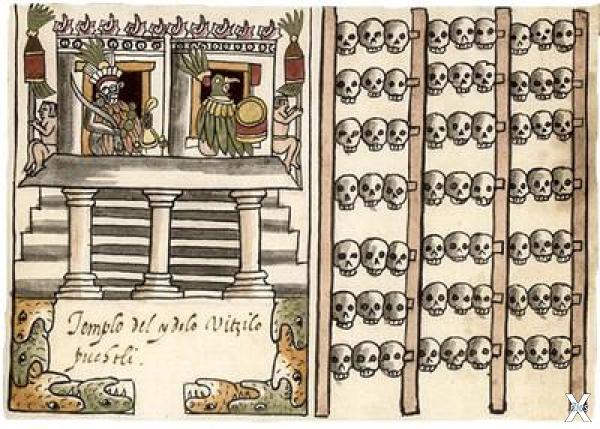 Templo del ydolo Vitzilo
puchtli.
X